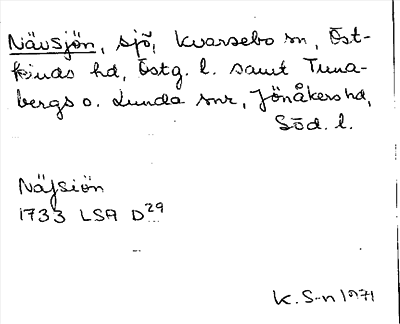 Nävsjön, sjö, Kvarsebo sn, Öst-
kinds hd, Östg. l. samt Tuna-
bergs o. Lunda snr, Jönåkers hd,
Söd. l.
Näfsiön
1733 LSA D29
K. S-n 1971